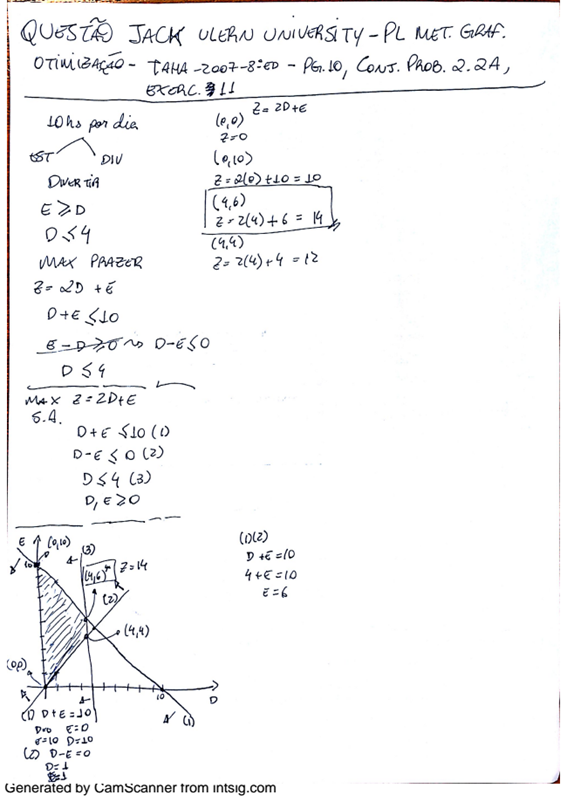 QUESTÃO JACK ULERN UNIVERSITY - PL MET. GRAF.
OTIMIZAÇÃO - TAHA - 2007 - 8ªED - PG. 10, CONJ. PROB. 2.2A,
EXERC. 11
10hs por dia
EST DIV
DIVERTIA
E ≥ D
D ≤ 4
MAX PRAZER
Z = 2D + E
D + E ≤ 10
E - D ≥ 0 ~> D - E ≤ 0
D ≤ 4
MAX Z = 2D + E
S.A.
D + E ≤ 10 (1)
D - E ≤ 0 (2)
D ≤ 4 (3)
D, E ≥ 0
Z = 2D + E
(0,0)
Z = 0
(0,10)
Z = 2(0) + 10 = 10
(4,6)
Z = 2(4) + 6 = 14
(4,4)
Z = 2(4) + 4 = 12
E (0,10) (3)
10
(4,6) Z = 14
(2)
(4,4)
(0,0)
10 D
(1)
(1) D + E = 10
D=0 E=0
E=10 D=10
(2) D - E = 0
D = 1
E = 1
(1)(2)
D + E = 10
4 + E = 10
E = 6
Generated by CamScanner from intsig.com